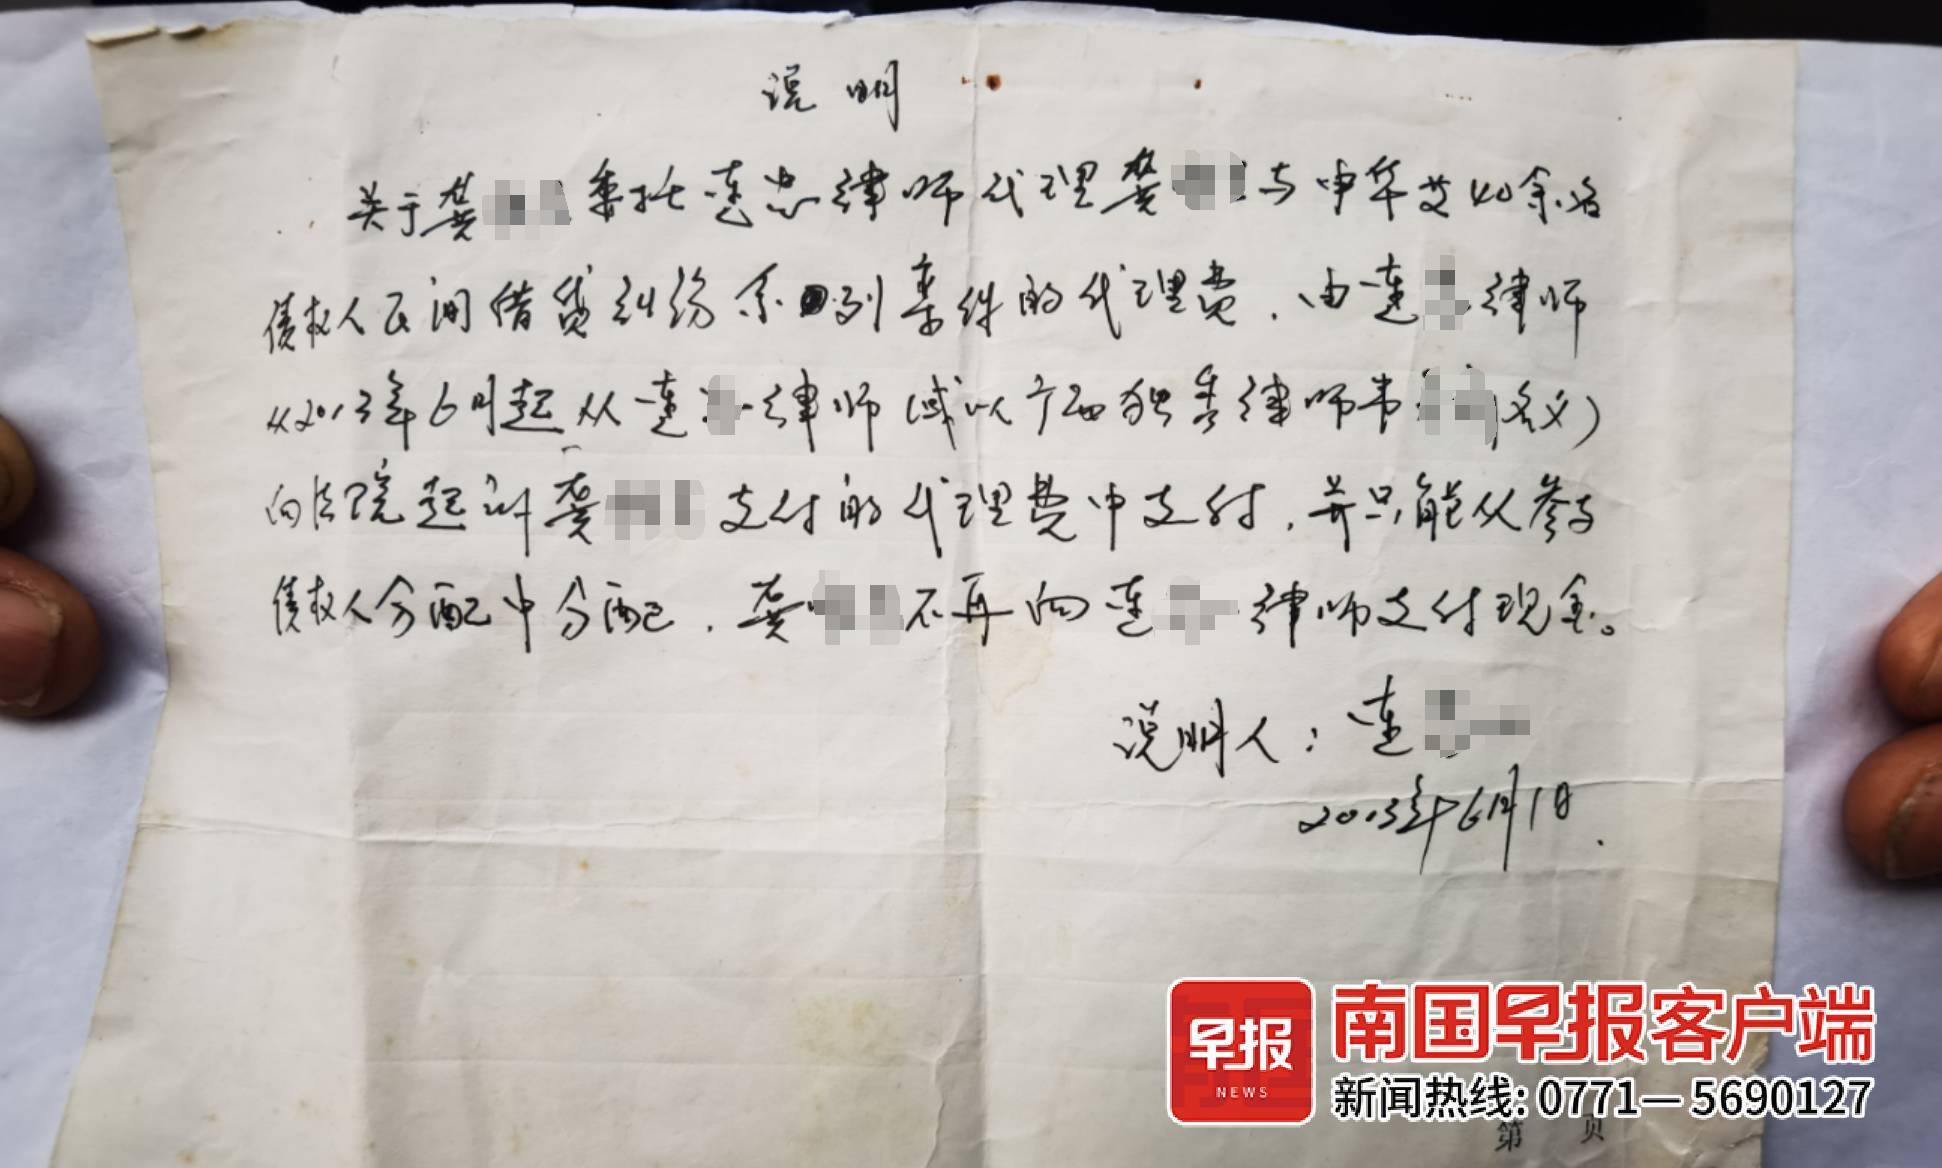 说明
关于龚 委托连忠律师代理龚 与申华芝40余名
债权人民间借贷纠纷系列案件的代理费,由连 律师
从2013年6月起从连 律师(或以广西独秀律师韦 名义)
向法院起诉龚 支付的代理费中支付,并只能从参与
债权人分配中分配,龚 不再向连 律师支付现金。
说明人:连
2013年6月1日
早报
NEWS
南国早报客户端
新闻热线:0771—5690127
第 页